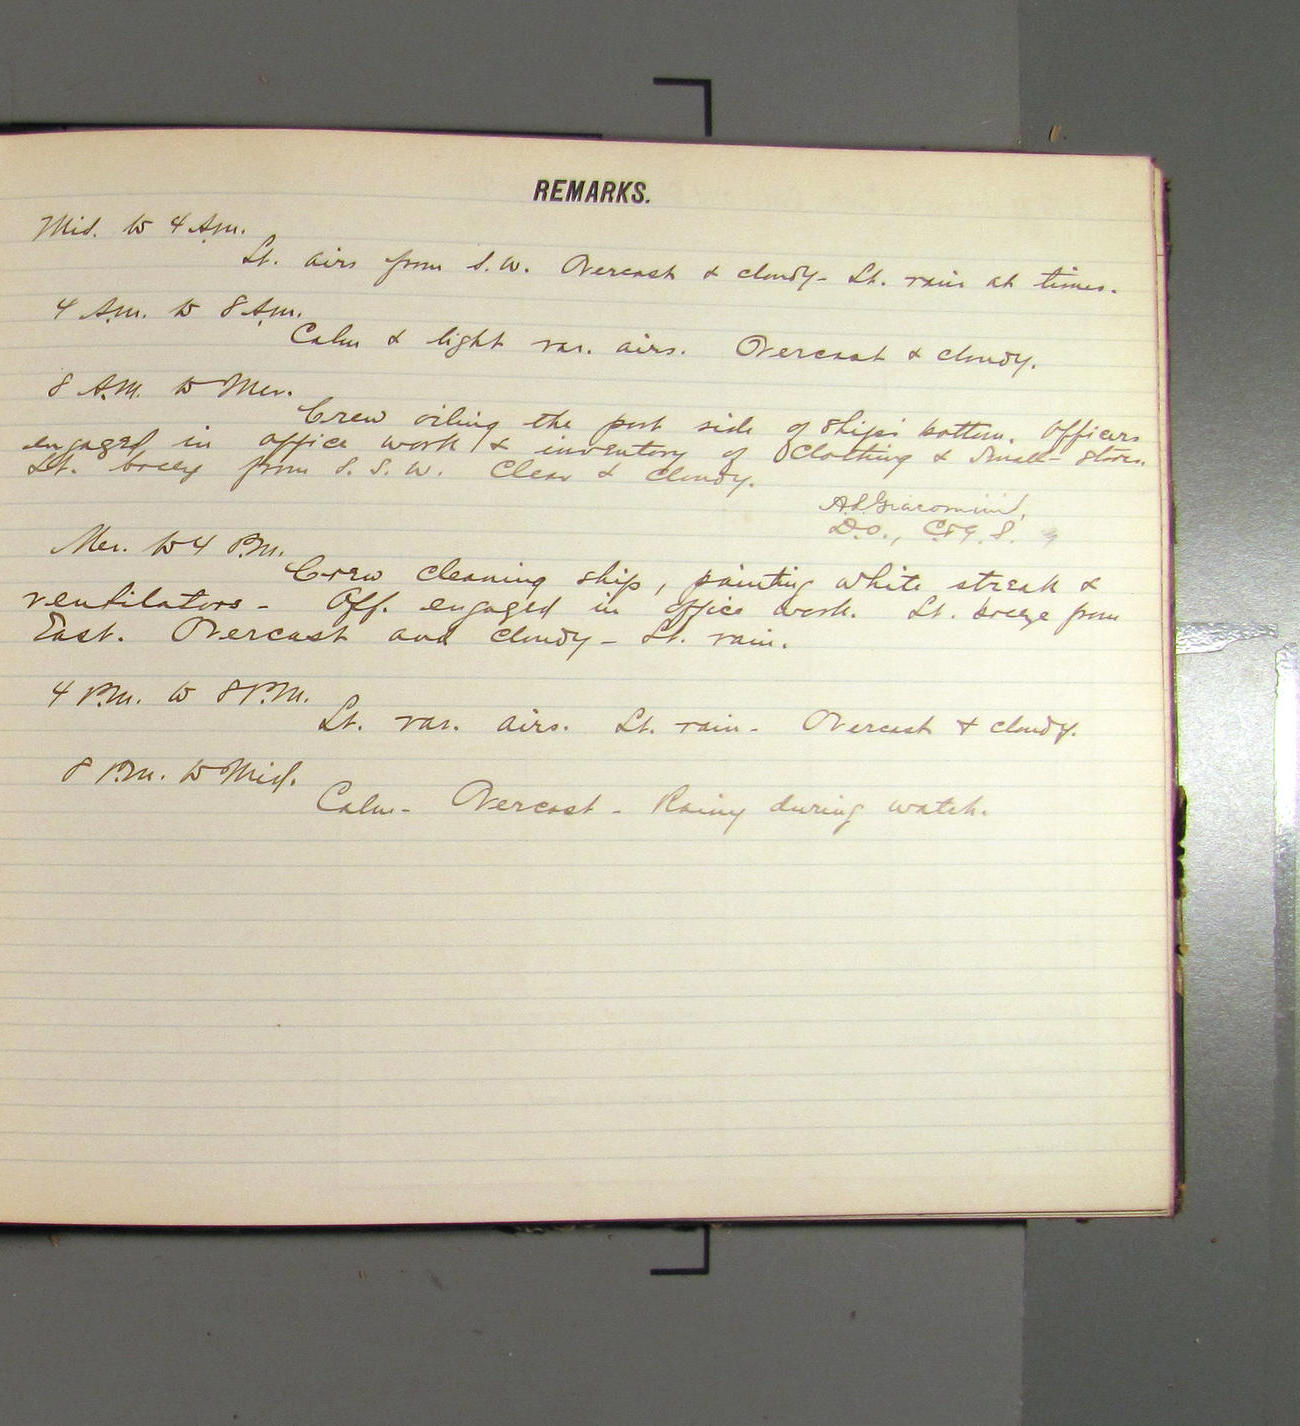 REMARKS.
Mid. to 4 A.m.
Lt. airs from S.W. Overcast & cloudy- Lt. rain at times.
4 A.m. to 8 A.m.
Calm & light var. airs. Overcast & cloudy.
8 A.M. to Mer.
Crew oiling the port side of Ship's bottom. Officers
engaged in office work & inventory of Clothing & Small-stores.
Lt. breezy from S.S.W. Clear & cloudy.
A.L. Giacomini,
D.O., C.&G.S.
Mer. to 4 P.m.
Crew cleaning ship, painting white streak &
ventilators- Off. engaged in office work. Lt. breeze from
East. Overcast and cloudy- Lt. rain.
4 P.m. to 8 P.M.
Lt. var. airs. Lt. rain- Overcast & cloudy.
8 P.m. to Mid.
Calm- Overcast- Rainy during watch.